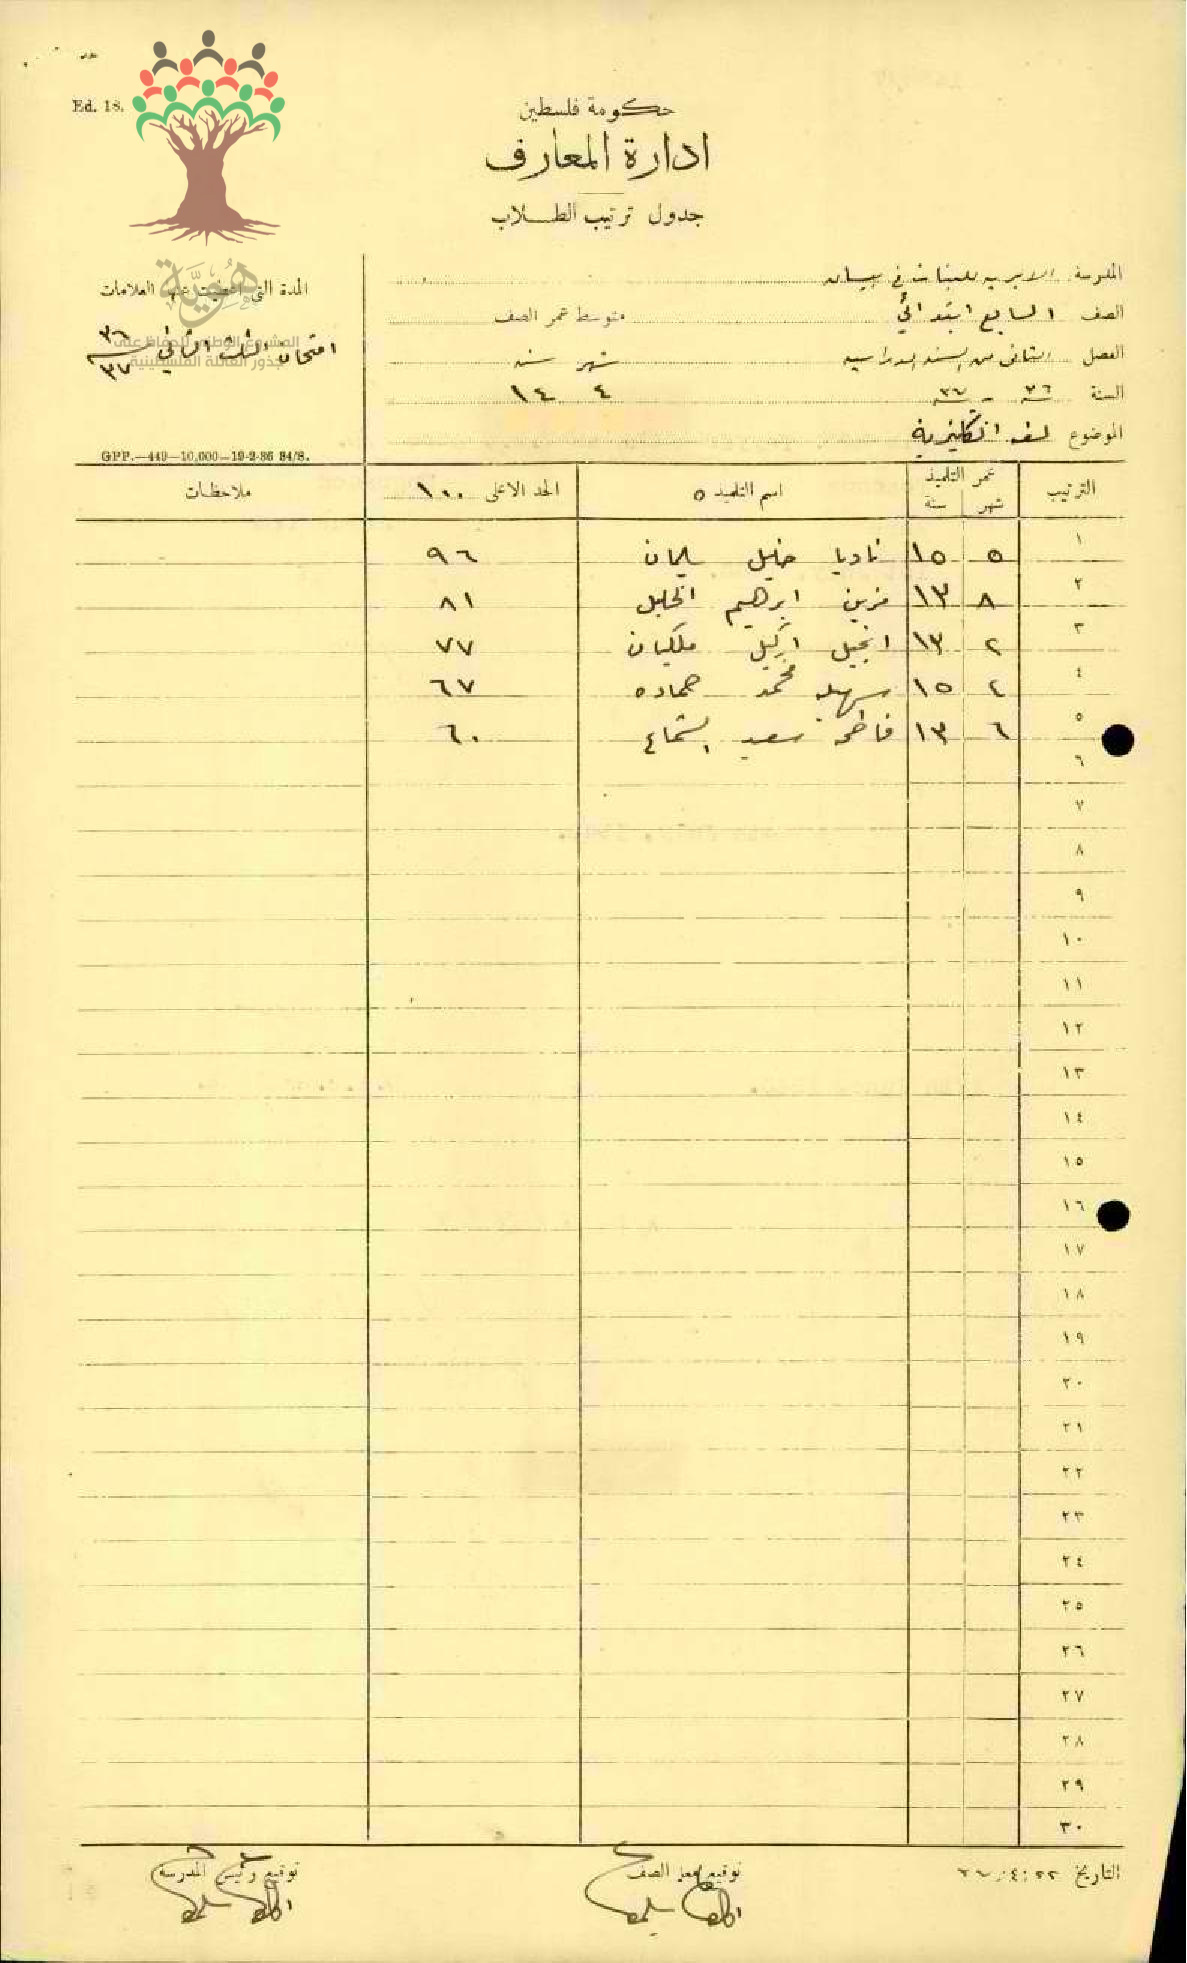 Ed. 18.
حكومة فلسطين
ادارة المعارف
جدول ترتيب الطلاب
المدرسة الاميريه للبنات في بيسان
الصف السابع ابتدائي متوسط عمر الصف
الفصل الثاني من السنه الدراسيه شهر سنه
السنة ٣٦ - ٣٧ ٤ ١٤
الموضوع لغه انكليزية
المدة التي اعطيت عنها العلامات
امتحان الثلث الثاني ٣٦ ٣٧
هُوِيَّة
المشروع الوطني للحفاظ على
جذور العائلة الفلسطينية
GPP.—449—10,000—19-2-36 84/8.
الترتيب عمر التلميذ شهر سنة اسم التلميذ ٥ الحد الاعلى ١٠٠ ملاحظات
١ ٥ ١٥ ناديا خليل سليمان ٩٦
٢ ٨ ١٣ مزين ابرهيم الخليل ٨١
٣ ٢ ١٣ انجيل اكيل ملكيان ٧٧
٤ ٤ ١٥ سهيله محمد حماده ٦٧
٥ ٦ ١٣ فاطمه سعيد الشماع ٦٠
٦
٧
٨
٩
١٠
١١
١٢
١٣
١٤
١٥
١٦
١٧
١٨
١٩
٢٠
٢١
٢٢
٢٣
٢٤
٢٥
٢٦
٢٧
٢٨
٢٩
٣٠
التاريخ ٢٢/٤/٣٧ توقيع معلم الصف توقيع رئيس المدرسة